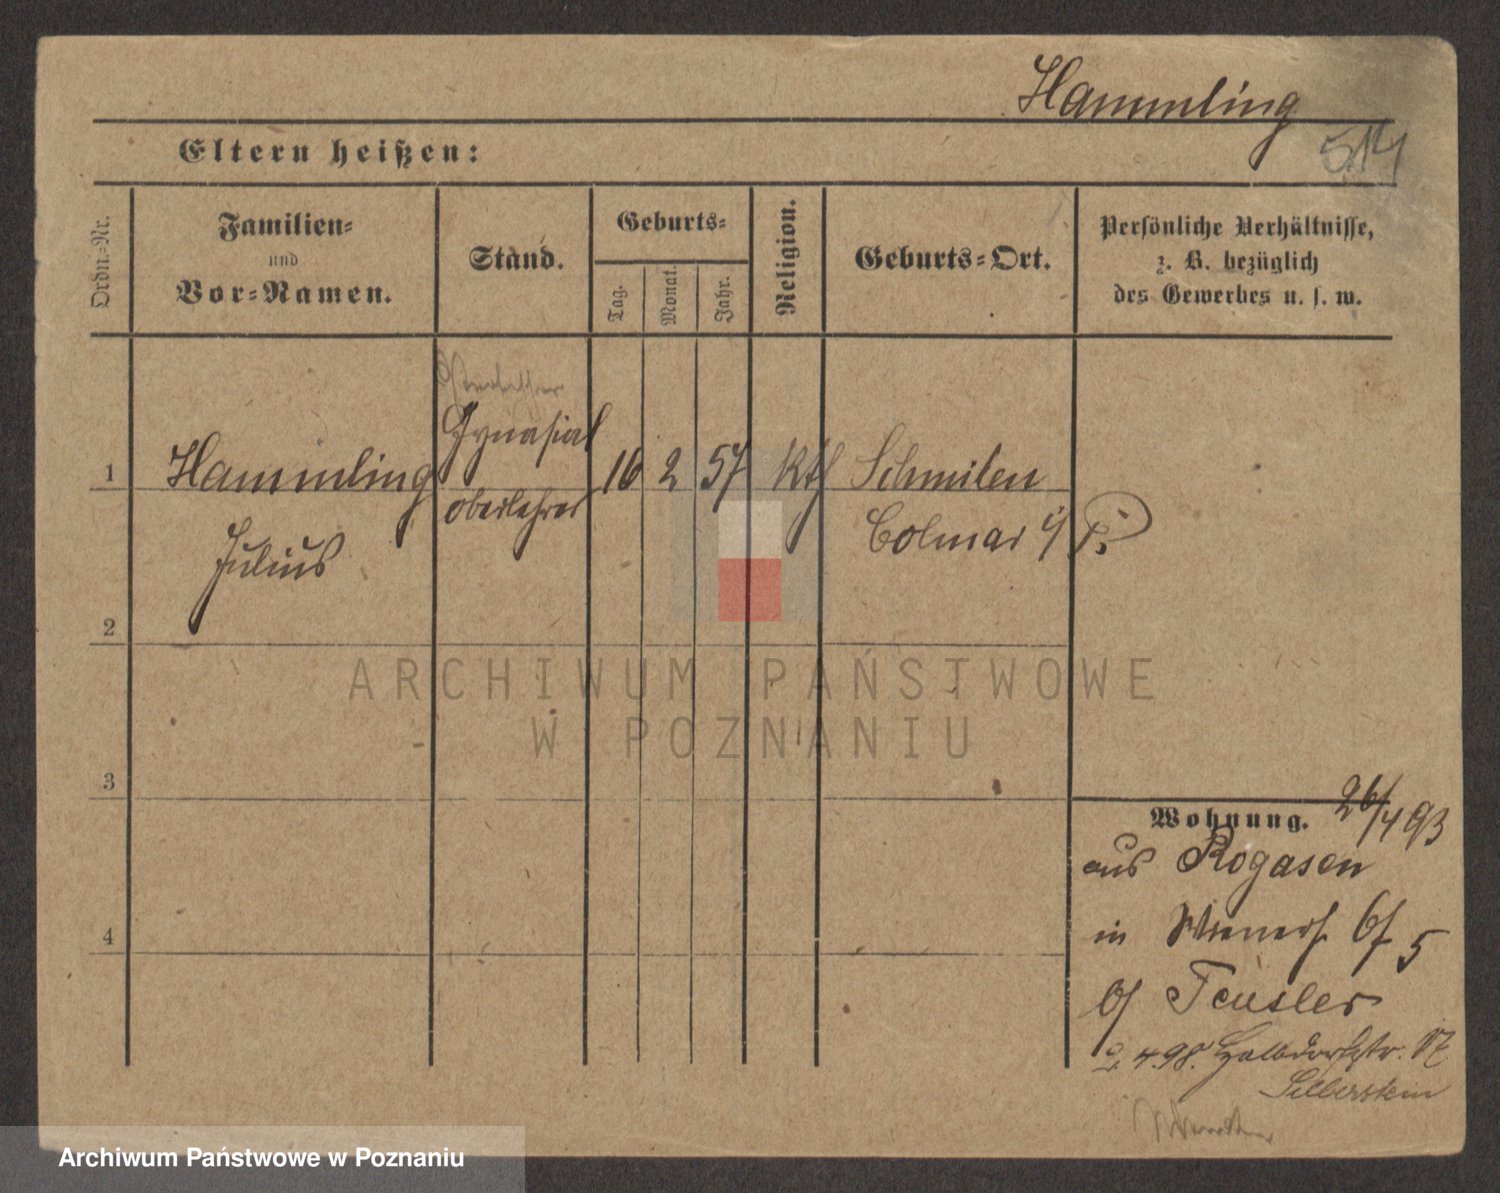 Hammling
514
Eltern heißen:
Ordn.-Nr.
Familien-
und
Vor-Namen.
Stand.
Geburts-
Tag.
Monat.
Jahr.
Religion.
Geburts-Ort.
Persönliche Verhältnisse,
z. B. bezüglich
des Gewerbes u. s. w.
1
Hammling
Julius
Gynasial
oberlehrer
16
2
57
Kth
Schmilen
Colmar i/P.
2
3
4
Wohnung.
26/4 93
aus Rogasen
in 6/5
b/ Teusler
2.4.98. Halbdorfstr. 17
Silberstein
ARCHIWUM PAŃSTWOWE
W POZNANIU
Archiwum Państwowe w Poznaniu